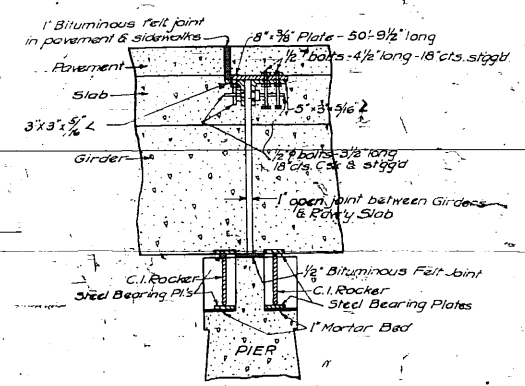 1" Bituminous felt joint
in pavement & sidewalks
8" x 3/8" Plate - 50'-9 1/2" long
1/2" φ bolts - 4 1/2" long - 18" cts. stgg'd
Pavement
Slab
5" x 3" x 5/16" L
3" x 3" x 5/16" L
Girder
1/2" φ bolts - 3 1/2" long
18" cts. Csk & stgg'd
1" open joint between Girders
& Rdw'y Slab
1/2" Bituminous Felt Joint
C.I. Rocker
Steel Bearing Pl's
C.I. Rocker
Steel Bearing Plates
1" Mortar Bed
PIER